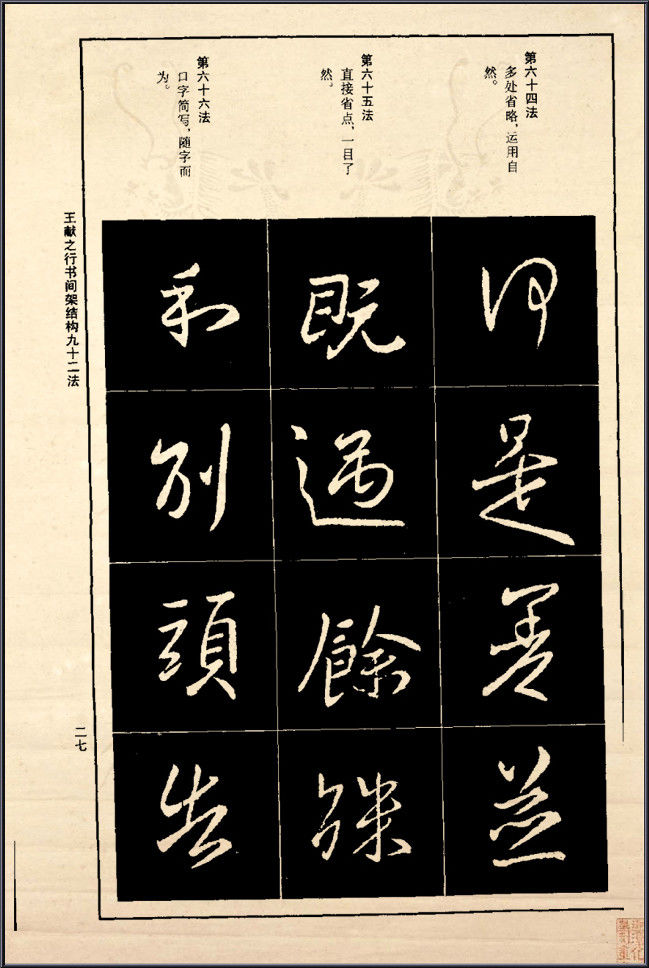 第六十四法
多处省略，运用自
然。
第六十五法
直接省点，一目了
然。
第六十六法
口字简写，随字而
为。
何是善並
既餘殊
和別頭告
王献之行书间架结构九十二法
二七